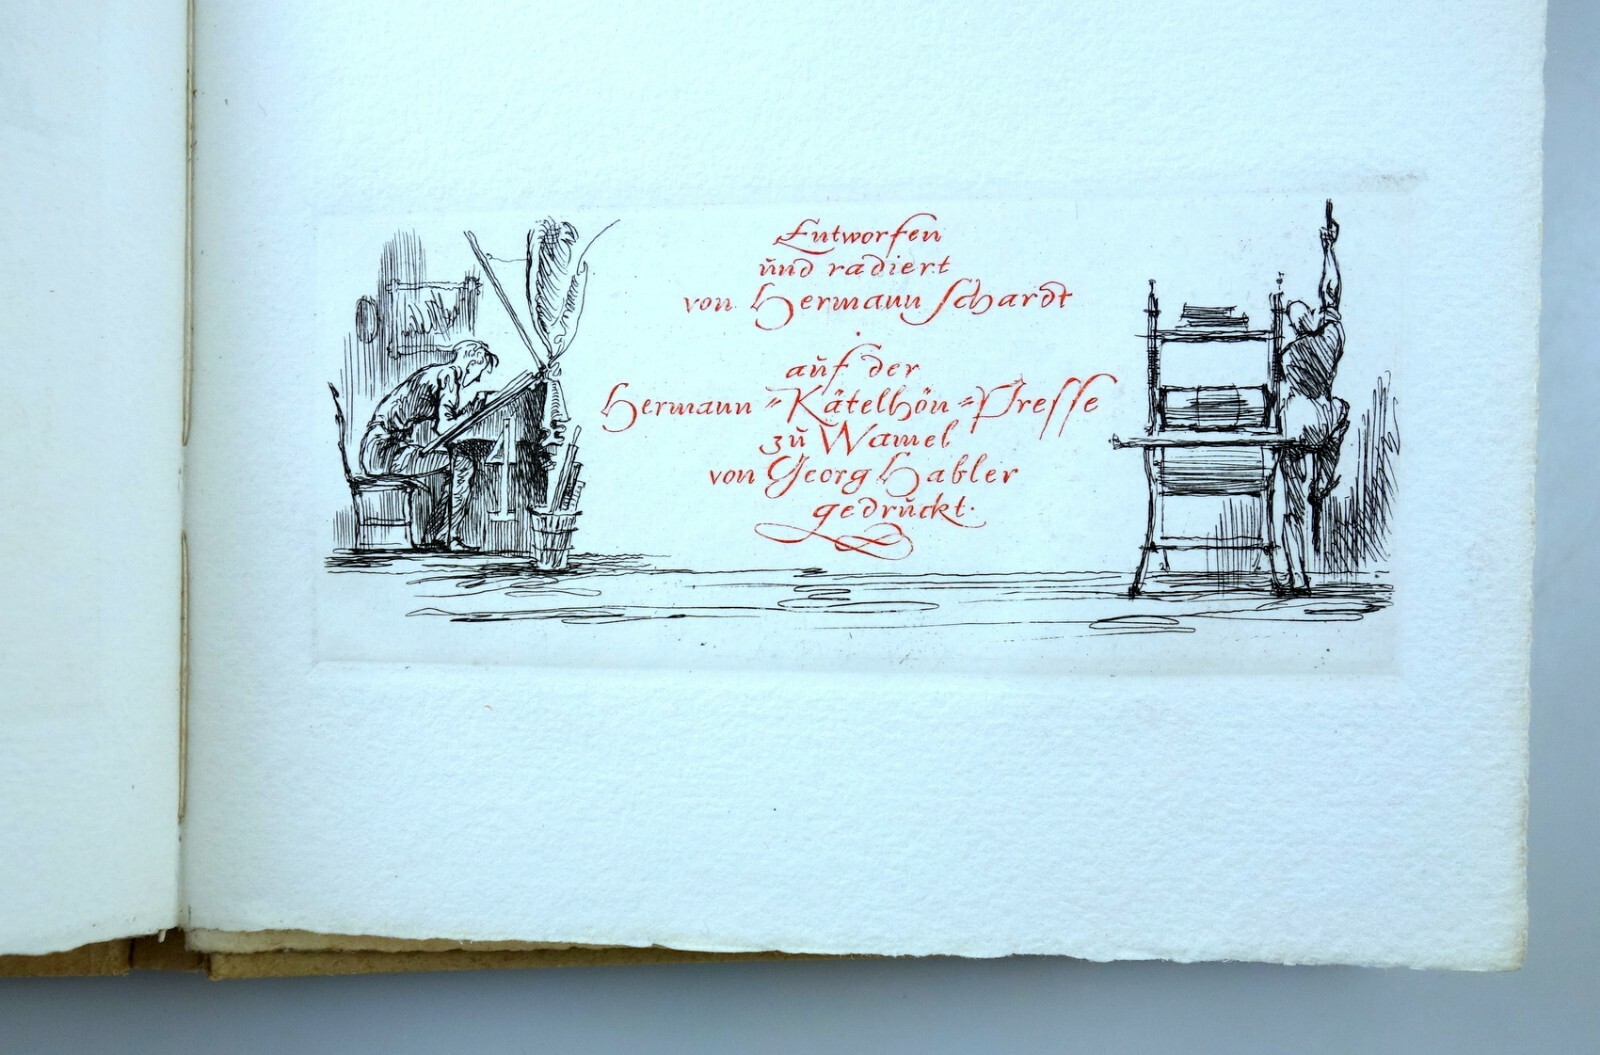 Entworfen
und radiert
von Hermann Schardt
auf der
Hermann=Kätelhön=Presse
zu Wamel
von Georg Habler
gedruckt.